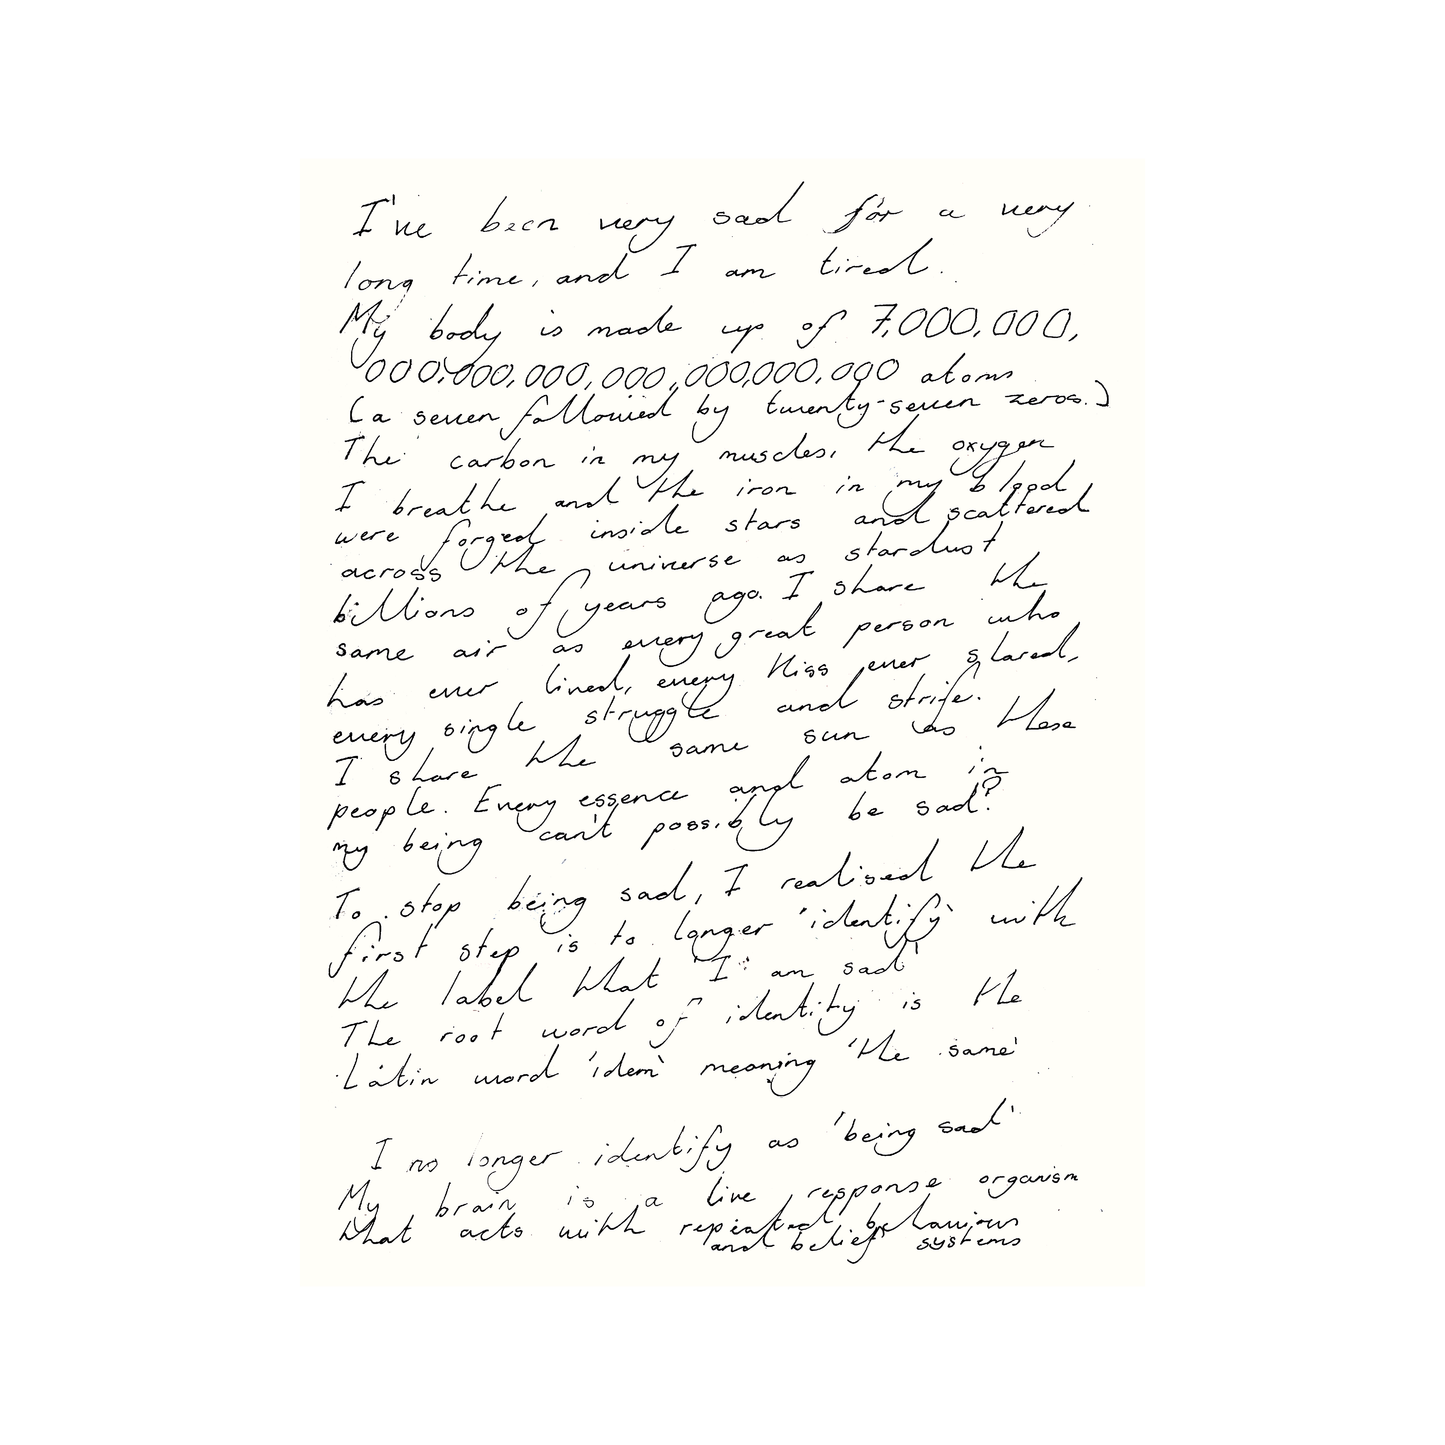 I've been very sad for a very
long time, and I am tired.
My body is made up of 7,000,000,
000,000,000,000,000,000,000 atoms
(a seven followed by twenty-seven zeros.)
The carbon in my muscles, the oxygen
I breathe and the iron in my blood
were forged inside stars and scattered
across the universe as stardust
billions of years ago. I share the
same air as every great person who
has ever lived, every kiss ever shared,
every single struggle and strife.
I share the same sun as these
people. Every essence and atom in
my being can't possibly be sad?
To stop being sad, I realised the
first step is to longer 'identify' with
the label that 'I am sad'
The root word of identity is the
Latin word 'idem' meaning 'the same'
I no longer identify as 'being sad'
My brain is a live response organism
that acts with repeated behaviours
and belief systems